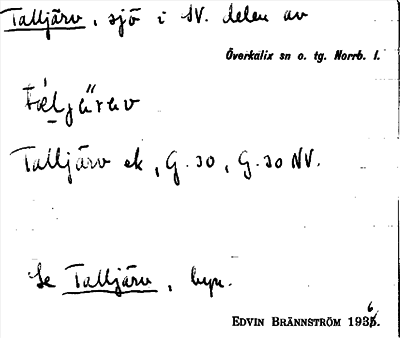 Talljärv, sjö i SV. delen av
Överkalix sn o. tg. Norrb. l.
Talljärv ek, G.30, G.30 NV.
Se Talljärv, byn.
EDVIN BRÄNNSTRÖM 1936.